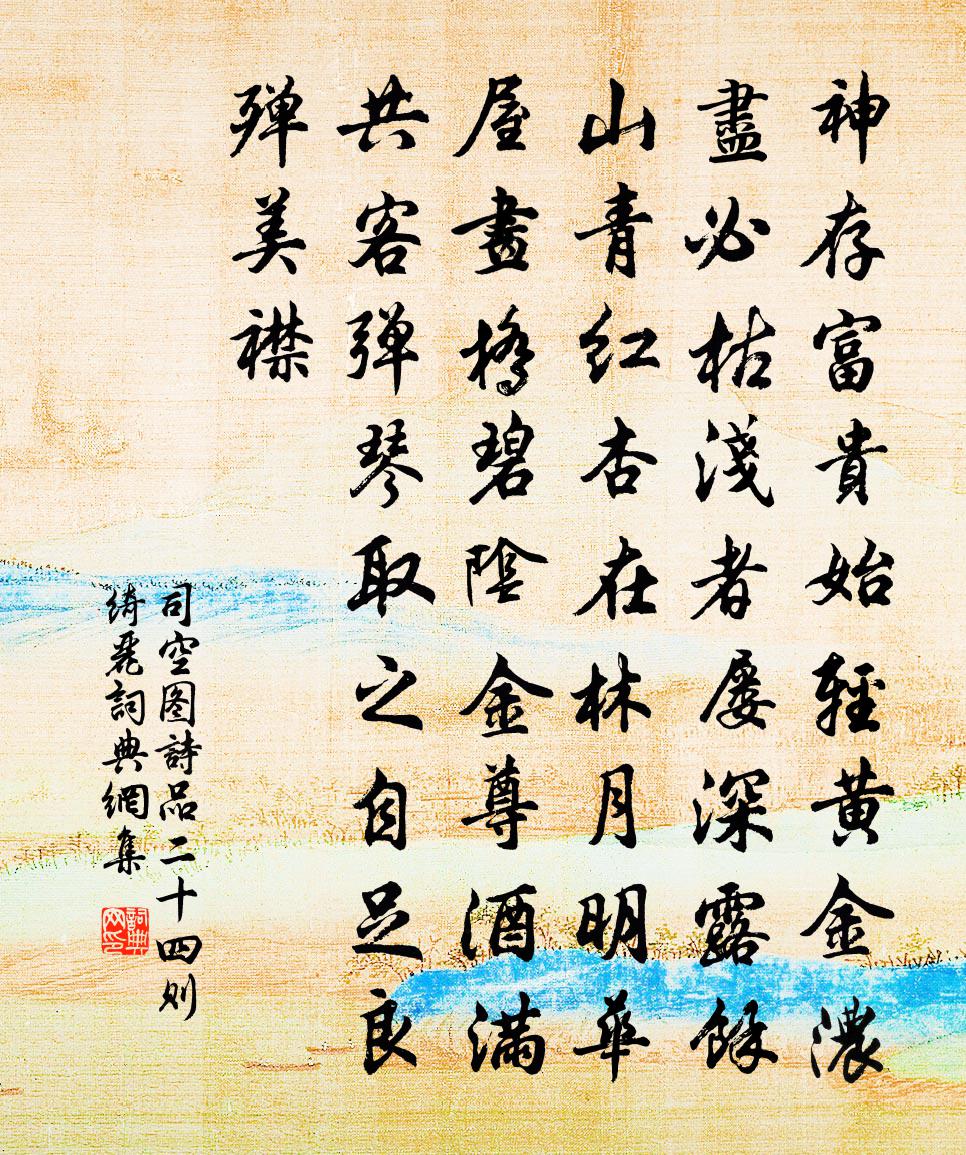 神存富貴始輕黃金濃
盡必枯淺者屢深露餘
山青紅杏在林月明華
屋畫橋碧陰金尊酒滿
共客彈琴取之自足良
殫美襟
司空图詩品二十四则
綺麗詞典網集
詞典网印